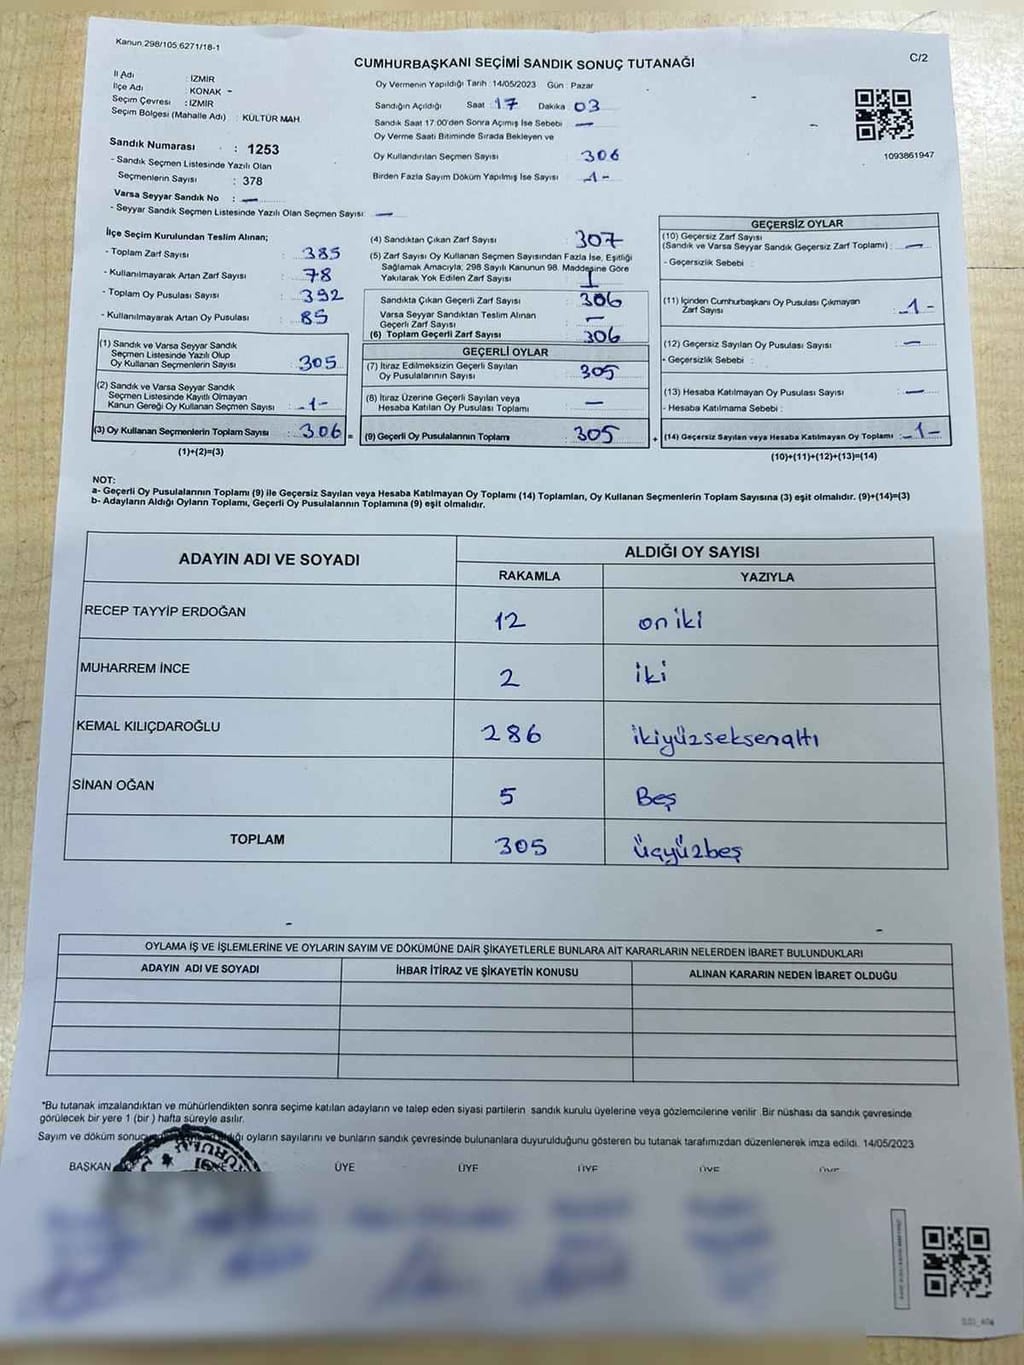 Kanun 298/105.6271/18-1
C/2
CUMHURBAŞKANI SEÇİMİ SANDIK SONUÇ TUTANAĞI
İl Adı : İZMİR
İlçe Adı : KONAK -
Seçim Çevresi : İZMİR
Seçim Bölgesi (Mahalle Adı) : KÜLTÜR MAH.
Sandık Numarası : 1253
- Sandık Seçmen Listesinde Yazılı Olan
Seçmenlerin Sayısı : 378
Varsa Seyyar Sandık No : —
- Seyyar Sandık Listesinde Yazılı Olan Seçmen Sayısı: —
Oy Vermenin Yapıldığı Tarih :14/05/2023 Gün : Pazar
Sandığın Açıldığı Saat 17 Dakika 03
Sandık Saat 17:00'den Sonra Açımış İse Sebebi —
Oy Verme Saati Bitiminde Sırada Bekleyen ve
Oy Kullandırılan Seçmen Sayısı 306
Birden Fazla Sayım Döküm Yapılmış İse Sayısı -1-
1093861947
İlçe Seçim Kurulundan Teslim Alınan;
- Toplam Zarf Sayısı : 385
- Kullanılmayarak Artan Zarf Sayısı : 78
- Toplam Oy Pusulası Sayısı : 392
- Kullanılmayarak Artan Oy Pusulası : 85
(1) Sandık ve Varsa Seyyar Sandık
Seçmen Listesinde Yazılı Olup
Oy Kullanan Seçmenlerin Sayısı : 305
(2) Sandık ve Varsa Seyyar Sandık
Seçmen Listesinde Kayıtlı Olmayan
Kanun Gereği Oy Kullanan Seçmen Sayısı : -1-
(3) Oy Kullanan Seçmenlerin Toplam Sayısı : 306 =
(1)+(2)=(3)
(4) Sandıktan Çıkan Zarf Sayısı : 307
(5) Zarf Sayısı Oy Kullanan Seçmen Sayısından Fazla İse, Eşitliği
Sağlamak Amacıyla; 298 Sayılı Kanunun 98. Maddesine Göre
Yakılarak Yok Edilen Zarf Sayısı : 1
Sandıkta Çıkan Geçerli Zarf Sayısı : 306
Varsa Seyyar Sandıktan Teslim Alınan
Geçerli Zarf Sayısı : —
(6) Toplam Geçerli Zarf Sayısı : 306
GEÇERLİ OYLAR
(7) İtiraz Edilmeksizin Geçerli Sayılan
Oy Pusulalarının Sayısı : 305
(8) İtiraz Üzerine Geçerli Sayılan veya
Hesaba Katılan Oy Pusulaları Toplamı : —
(9) Geçerli Oy Pusulalarının Toplamı : 305 +
GEÇERSİZ OYLAR
(10) Geçersiz Zarf Sayısı
(Sandık ve Varsa Seyyar Sandık Geçersiz Zarf Toplamı) : —
- Geçersizlik Sebebi :
(11) İçinden Cumhurbaşkanı Oy Pusulası Çıkmayan
Zarf Sayısı : -1-
(12) Geçersiz Sayılan Oy Pusulası Sayısı : —
- Geçersizlik Sebebi :
(13) Hesaba Katılmayan Oy Pusulası Sayısı : —
- Hesaba Katılmama Sebebi :
(14) Geçersiz Sayılan veya Hesaba Katılmayan Oy Toplamı : -1-
(10)+(11)+(12)+(13)=(14)
NOT:
a- Geçerli Oy Pusulalarının Toplamı (9) ile Geçersiz Sayılan veya Hesaba Katılmayan Oy Toplamı (14) Toplamları, Oy Kullanan Seçmenlerin Toplam Sayısına (3) eşit olmalıdır. (9)+(14)=(3)
b- Adayların Aldığı Oyların Toplamı, Geçerli Oy Pusulalarının Toplamına (9) eşit olmalıdır.
ADAYIN ADI VE SOYADI ALDIĞI OY SAYISI
RAKAMLA YAZIYLA
RECEP TAYYİP ERDOĞAN 12 on iki
MUHARREM İNCE 2 iki
KEMAL KILIÇDAROĞLU 286 ikiyüzseksenaltı
SİNAN OĞAN 5 Beş
TOPLAM 305 üçyüzbeş
OYLAMA İŞ VE İŞLEMLERİNE VE OYLARIN SAYIM VE DÖKÜMÜNE DAİR ŞİKAYETLERLE BUNLARA AİT KARARLARIN NELERDEN İBARET BULUNDUKLARI
ADAYIN ADI VE SOYADI İHBAR İTİRAZ VE ŞİKAYETİN KONUSU ALINAN KARARIN NEDEN İBARET OLDUĞU
*Bu tutanak imzalandıktan ve mühürlendikten sonra seçime katılan adayların ve talep eden siyasi partilerin sandık kurulu üyelerine veya gözlemcilerine verilir. Bir nüshası da sandık çevresinde
görülecek bir yere 1 (bir) hafta süreyle asılır.
Sayım ve döküm oyların sayılarını ve bunların sandık çevresinde bulunanlara duyurulduğunu gösteren bu tutanak tarafımızdan düzenlenerek imza edildi. 14/05/2023
BAŞKAN ÜYE ÜYE ÜYE ÜYE ÜYE